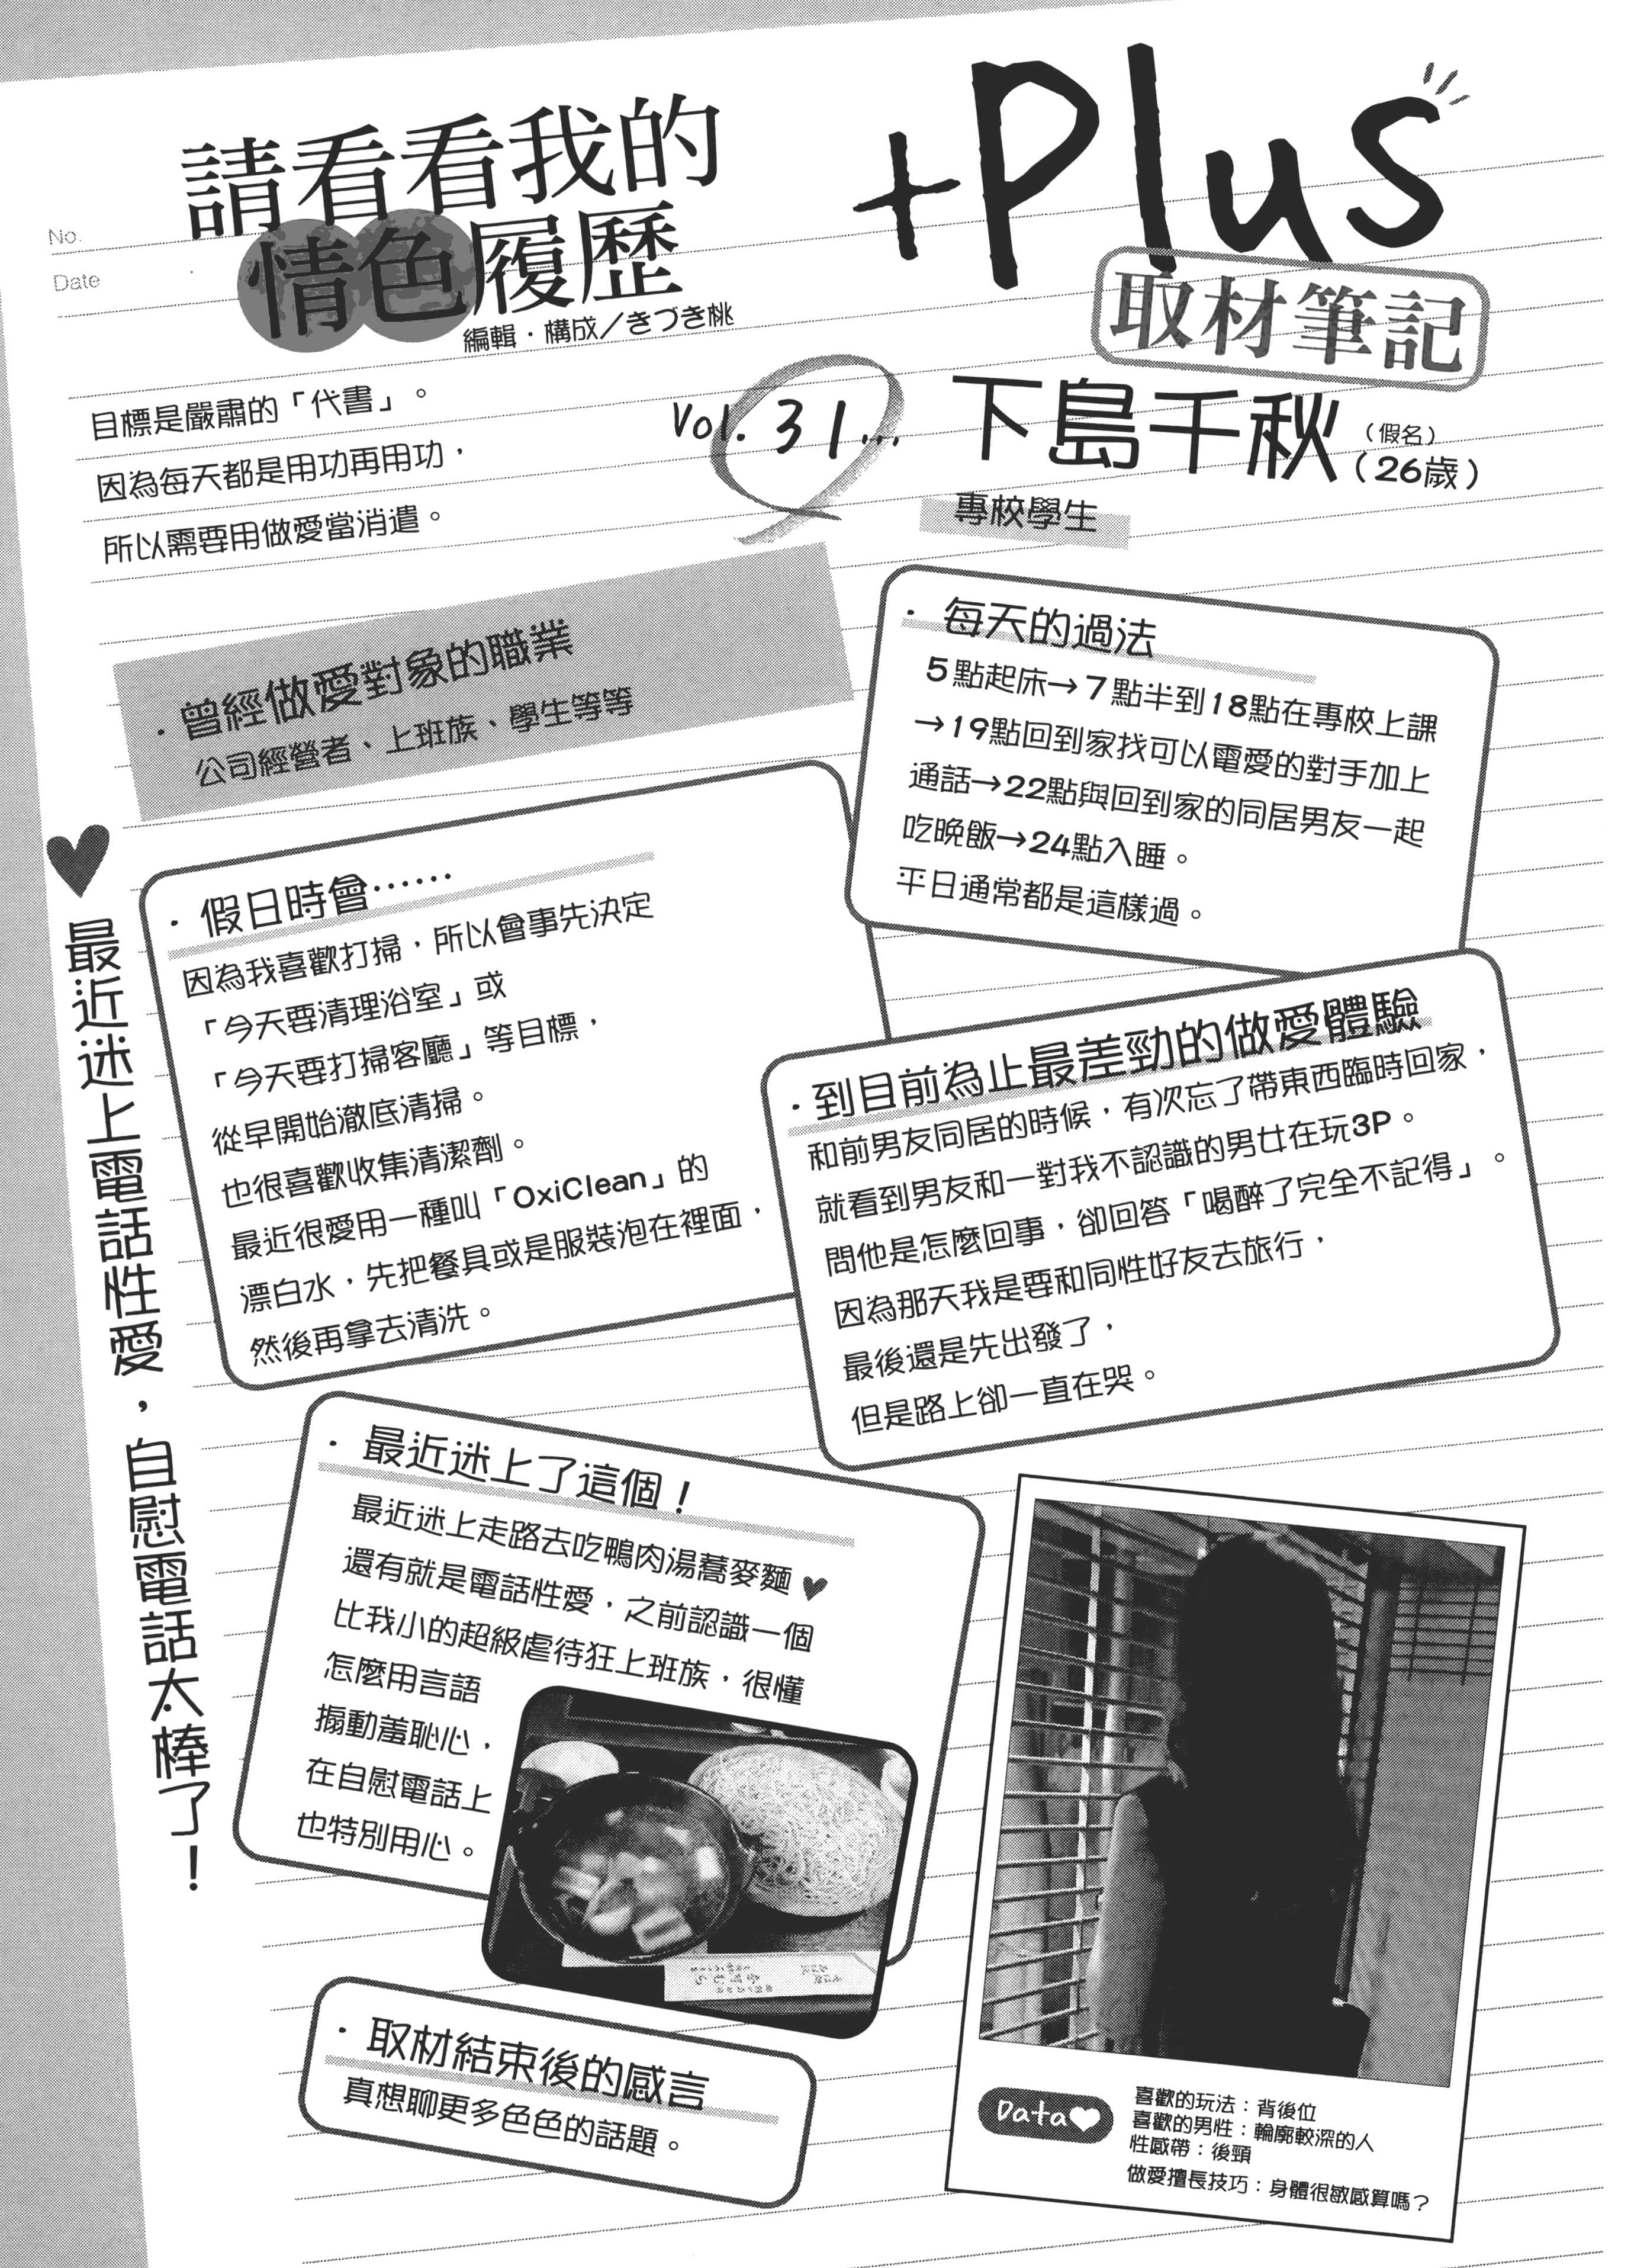 No.
Date
請看看我的
情色履歷
編輯・構成／きづき桃
+Plus
取材筆記
目標是嚴肅的「代書」。
因為每天都是用功再用功，
所以需要用做愛當消遣。
Vol. 31...
下島千秋（假名）
（26歲）
專校學生
・曾經做愛對象的職業
公司經營者、上班族、學生等等
・每天的過法
5點起床→7點半到18點在專校上課
→19點回到家找可以電愛的對手加上
通話→22點與回到家的同居男友一起
吃晚飯→24點入睡。
平日通常都是這樣過。
♥最近迷上電話性愛，自慰電話太棒了！
・假日時會……
因為我喜歡打掃，所以會事先決定
「今天要清理浴室」或
「今天要打掃客廳」等目標，
從早開始澈底清掃。
也很喜歡收集清潔劑。
最近很愛用一種叫「OxiClean」的
漂白水，先把餐具或是服裝泡在裡面，
然後再拿去清洗。
・到目前為止最差勁的做愛體驗
和前男友同居的時候，有次忘了帶東西臨時回家，
就看到男友和一對我不認識的男女在玩3P。
問他是怎麼回事，卻回答「喝醉了完全不記得」。
因為那天我是要和同性好友去旅行，
最後還是先出發了，
但是路上卻一直在哭。
・最近迷上了這個！
最近迷上走路去吃鴨肉湯蕎麥麵♥
還有就是電話性愛，之前認識一個
比我小的超級虐待狂上班族，很懂
怎麼用言語
搧動羞恥心，
在自慰電話上
也特別用心。
・取材結束後的感言
真想聊更多色色的話題。
Data♥
喜歡的玩法：背後位
喜歡的男性：輪廓較深的人
性感帶：後頸
做愛擅長技巧：身體很敏感算嗎？